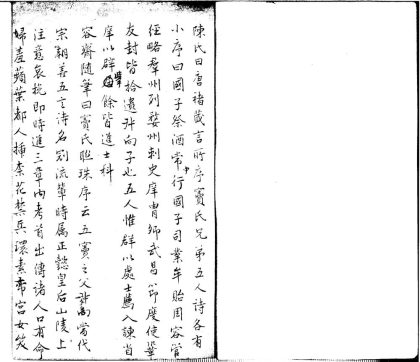 陳氏曰唐褚藏言所序竇氏兄弟五人詩各有
小序曰國子祭酒常中行國子司業牟貽周容管
經略羣丹列婺州刺史庠胄卿武昌節度使鞏
友封皆拾遺叔向子也五人惟群以處士薦入諫省
庠以辟舉餘皆進士科
容齋隨筆曰竇氏聯珠序云五竇之父叔向當代
宗朝善五言詩名冠流輩時属正懿皇后山陵上
注意哀挽即時進三章內考首出傳諸人口有命
婦羞蘋葉都人插柰花禁兵環素帟宮女哭